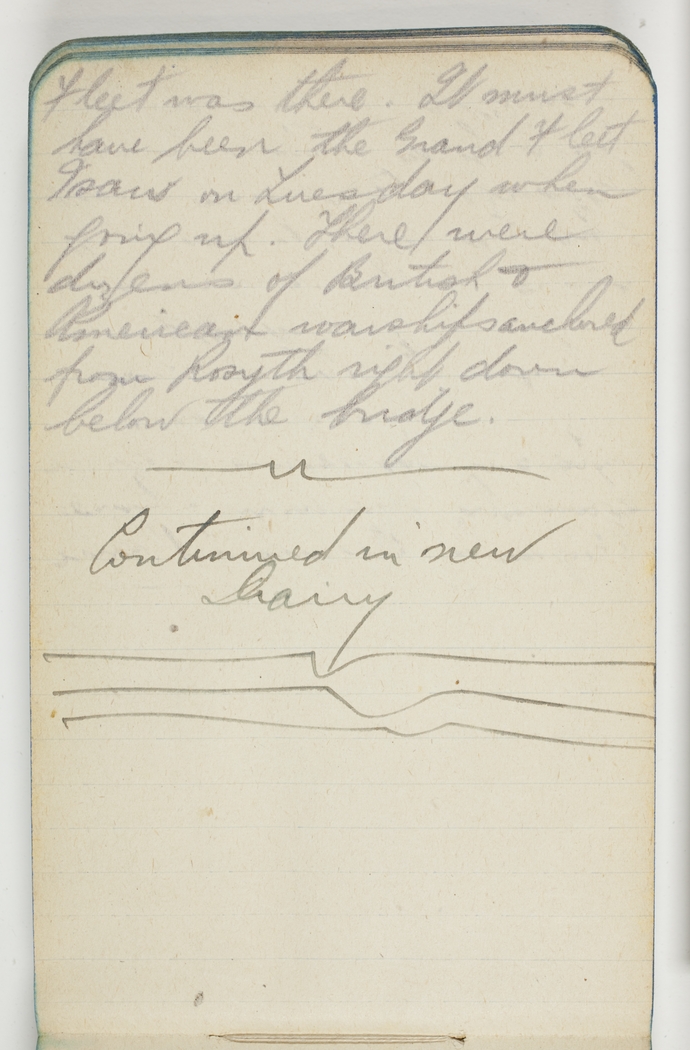 Fleet was there. It must
have been the Grand Fleet
I saw on Tuesday when
going up. There were
dozens of British &
American warships anchored
from Rosyth right down
below the bridge.
Continued in new
Diairy